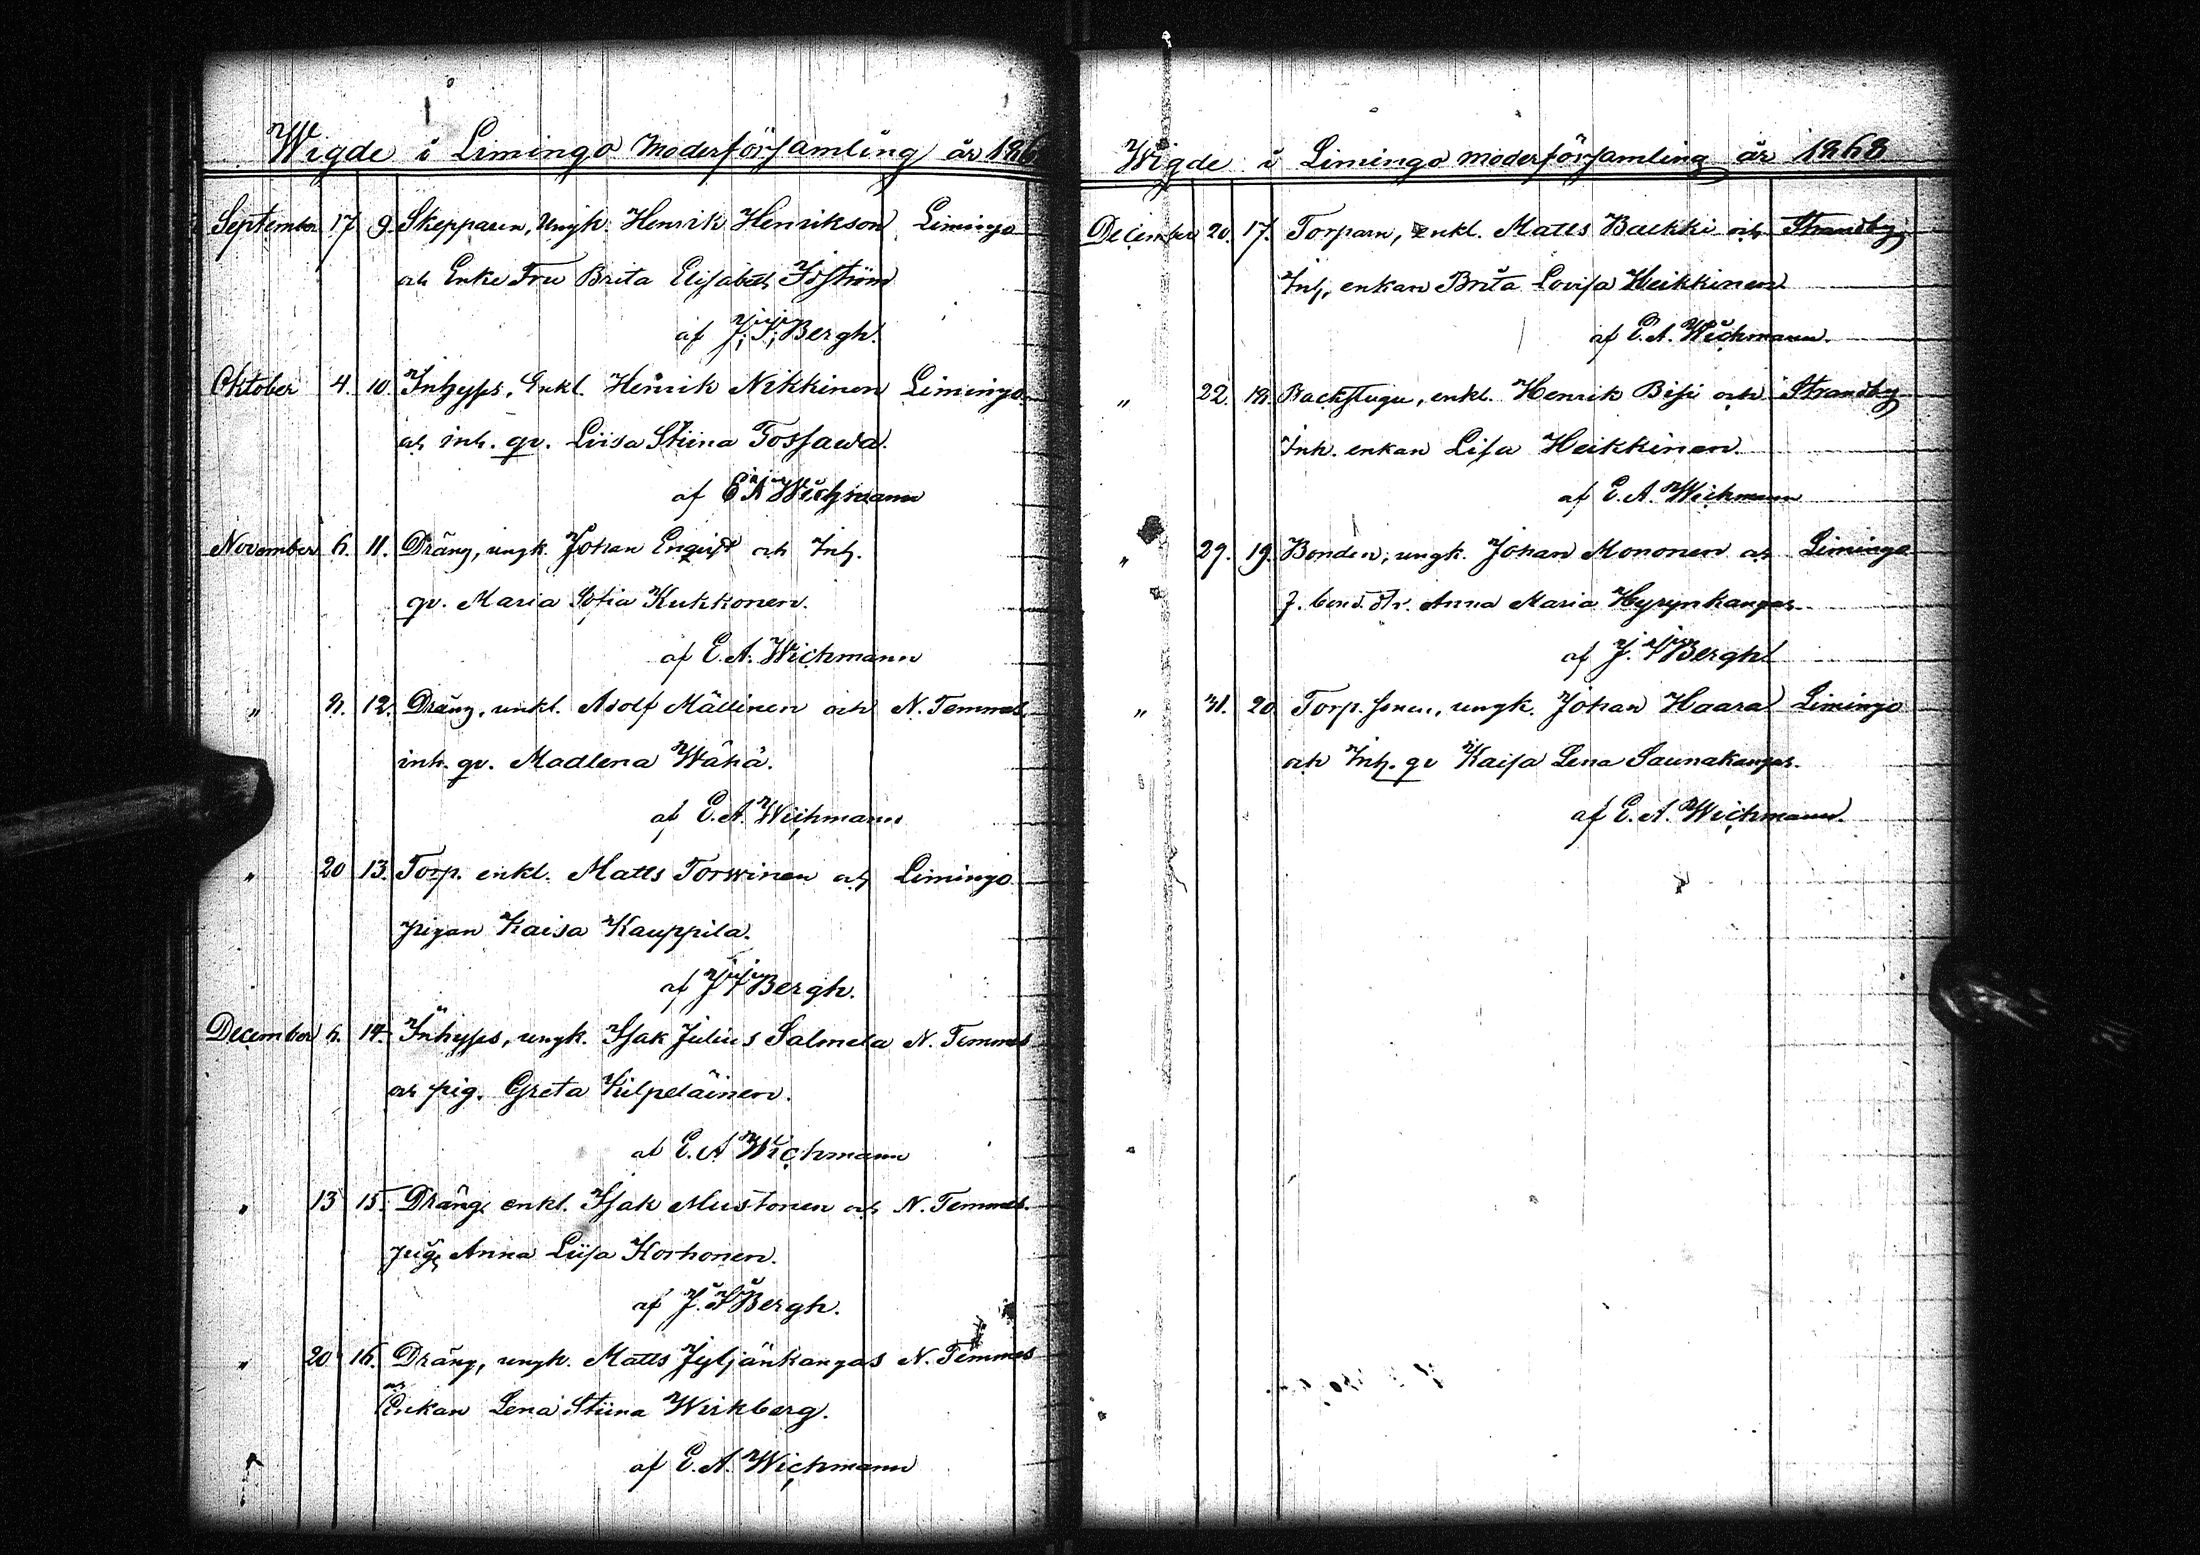 Wigde i Limingo moderförsamling år 186
September 17 9. Skepparen, Ungk. Henrik Henrikson Limingo
och Enke Fru Brita Elisabeth
af J. F. Bergh.
Oktober 4. 10. Inhyses, Enkl. Henrik Nikkinen Limingo
och inh. qv. Liisa Stiina Tossawa.
af E A Wichmann
November 6. 11. Dräng, ungk. Johan Enqvist och Inh.
qv. Maria Sofia Kukkonen.
af E. A. Wichmann
" 12. Dräng, unkl. Adolf Mällinen och N. Temmes
inh. qv. Madlena Wähä.
af E. A. Wichmann
" 20 13. Torp. enkl. Matts Torwinen och Limingo
pigan Kaisa Kauppila.
af J F Bergh.
December 6. 14. Inhyses, ungk. Isak Julius Salmela N. Temmes
och pig. Greta Kilpeläinen.
af E. A Wichmann
" 13 15. Dräng enkl. Isak Mustonen och N. Temmes.
pig. Anna Liisa Korhonen.
af J. F Bergh.
" 20 16. Dräng, ungk. Matts Jyljänkangas N. Temmes
och Enkan Lena Stiina Wirkberg.
af E. A. Wichmann
Wigde i Limingo moderförsamling år 1868
December 20. 17. Torparn, enkl. Matts Backki och Strandby
Inh. enkan Brita Lovisa Heikkinen
af E. A. Wichmann.
" 22. 18. Backstugu, enkl. Henrik Bisi och Strandby
Inh. enkan Lisa Heikkinen.
af E. A. Wichmann
" 29. 19. Bonden, ungk. Johan Mononen och Limingo
f. bond. dtr. Anna Maria Hyrynkangas
af J. F Bergh
" 31. 20 Torp. sonen, ungk. Johan Haara Limingo
och Inh. qv Kaisa Lena Saunakangas.
af E. A. Wichmann.